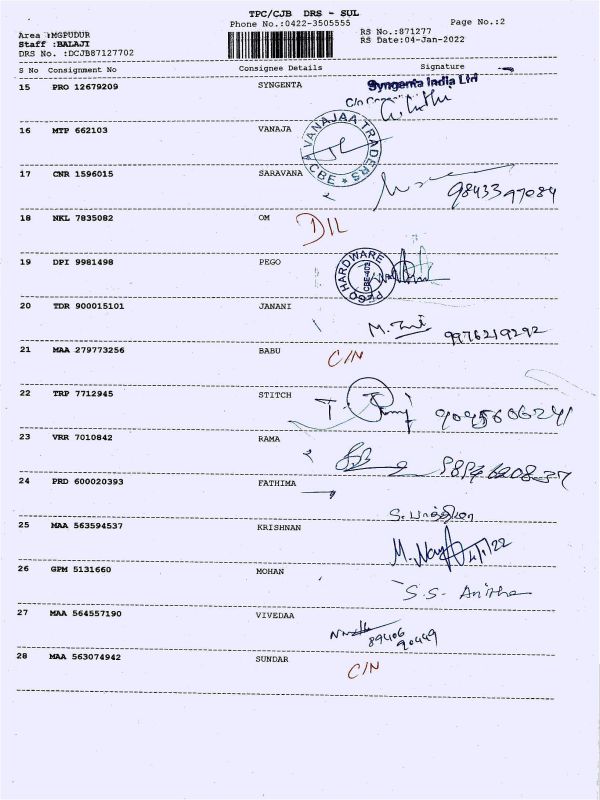 TPC/CJB DRS - SUL
Phone No.:0422-3505555
Page No.:2
Area :MGPUDUR
Staff :BALAJI
DRS No. :DCJB87127702
RS No.:871277
RS Date:04-Jan-2022
S No Consignment No Consignee Details Signature
15 PRO 12679209 SYNGENTA Syngenta India Ltd
C/o
16 MTP 662103 VANAJA VANAJAA TRADERS CBE
17 CNR 1596015 SARAVANA 9843397084
18 NKL 7835082 OM D/L
19 DPI 9981498 PEGO PEGO HARDWARE CBE-402
20 TDR 900015101 JANANI M. 9976219292
21 MAA 279773256 BABU C/N
22 TRP 7712945 STITCH T. 9045606241
23 VRR 7010842 RAMA
24 PRD 600020393 FATHIMA S. பாத்திமா
25 MAA 563594537 KRISHNAN M. 4/1/22
26 GPM 5131660 MOHAN S.S. Anitha
27 MAA 564557190 VIVEDAA 89406
90449
28 MAA 563074942 SUNDAR C/N